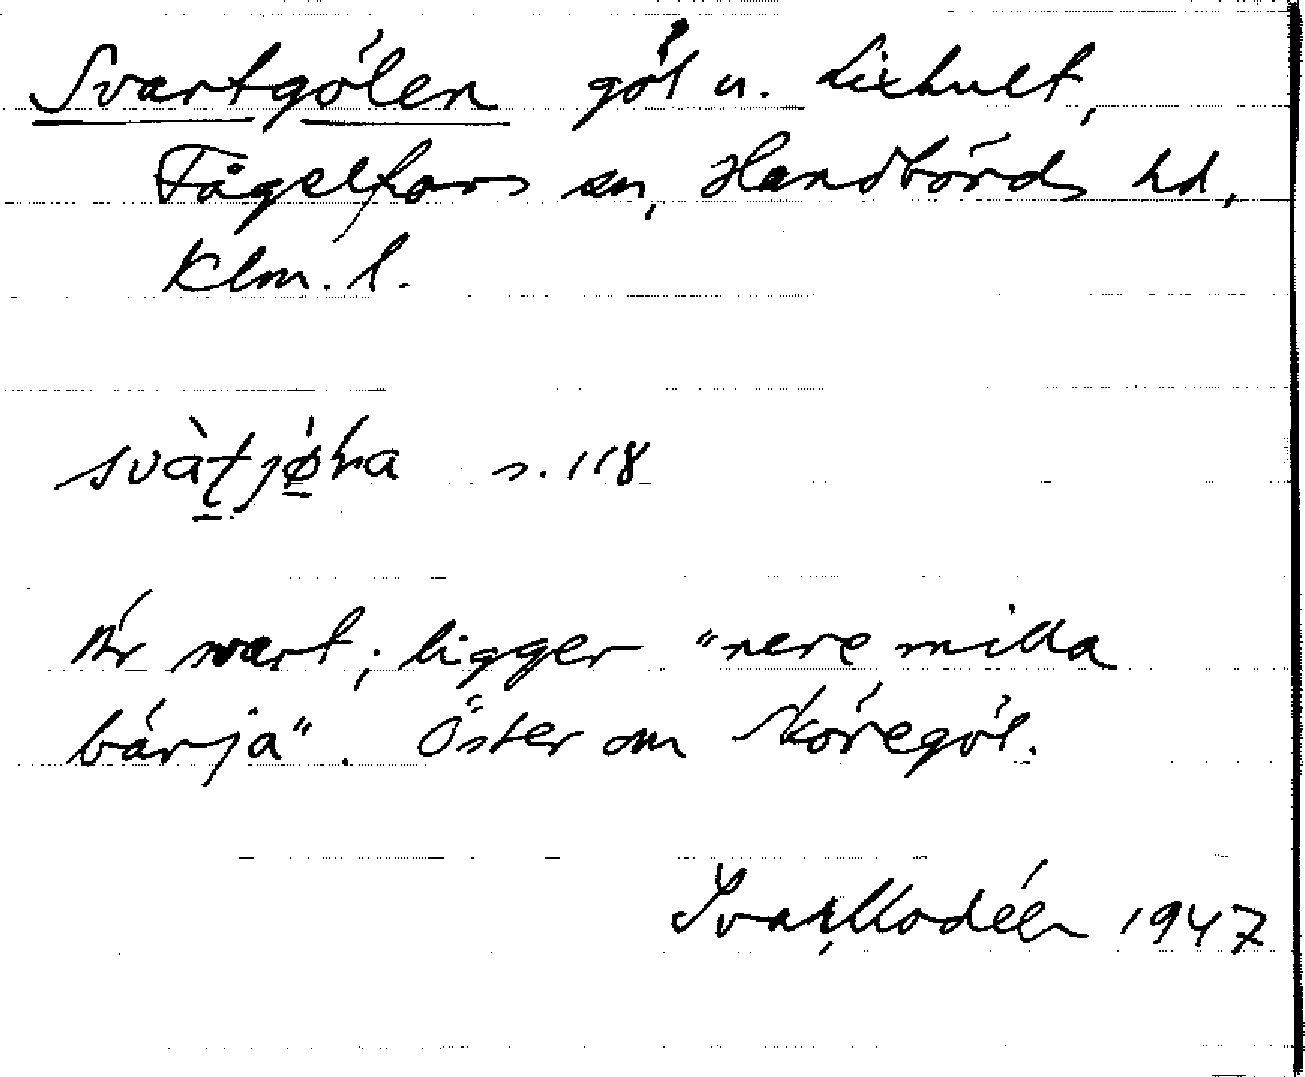 Svartgölen göl u. Lixhult,
Fågelfors sn, Handbörds hd,
Klm. l.
s. 118
Är svart; ligger "nere milla
bärja". Öster om Köregöl.
Ivar Modéer 1947